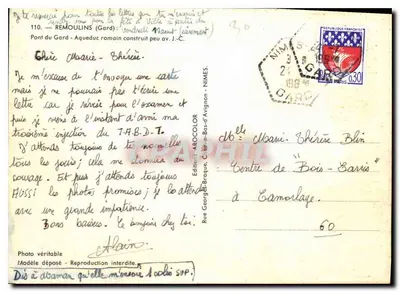 Je te remercie pour toutes les lettres que tu m'écris et
110. — REMOULINS (Gard)
Pont du Gard - Aqueduc romain construit peu av. J.-C.
Chère Marie-Thérèse.
Je m'excuse de t'envoyer une carte
mais je ne pouvais pas t'écrire une
lettre car je révise pour l'examen et
puis je viens à l'instant d'avoir ma
troisième injection du T.A.B.D.T.
J'attends toujours de tes nouvelles
tous les jours; cela me donnera du
courage. Et puis j'attends toujours
AUSSI les photos promises; je les attends
avec une grande impatience.
Bons baisers. Le bonjour chez toi.
Alain
Photo véritable
Modèle déposé - Reproduction interdite
Dis à maman qu'elle m'envoie 1 colis S.V.P.
Edition LAROCOLOR
Rue Georges-Braque, NIMES
REPUBLIQUE FRANÇAISE
0,30
NIMES
GARD
Mlle Marie Thérèse Blin
Centre de "Bois-Larris"
à Lamorlaye
60